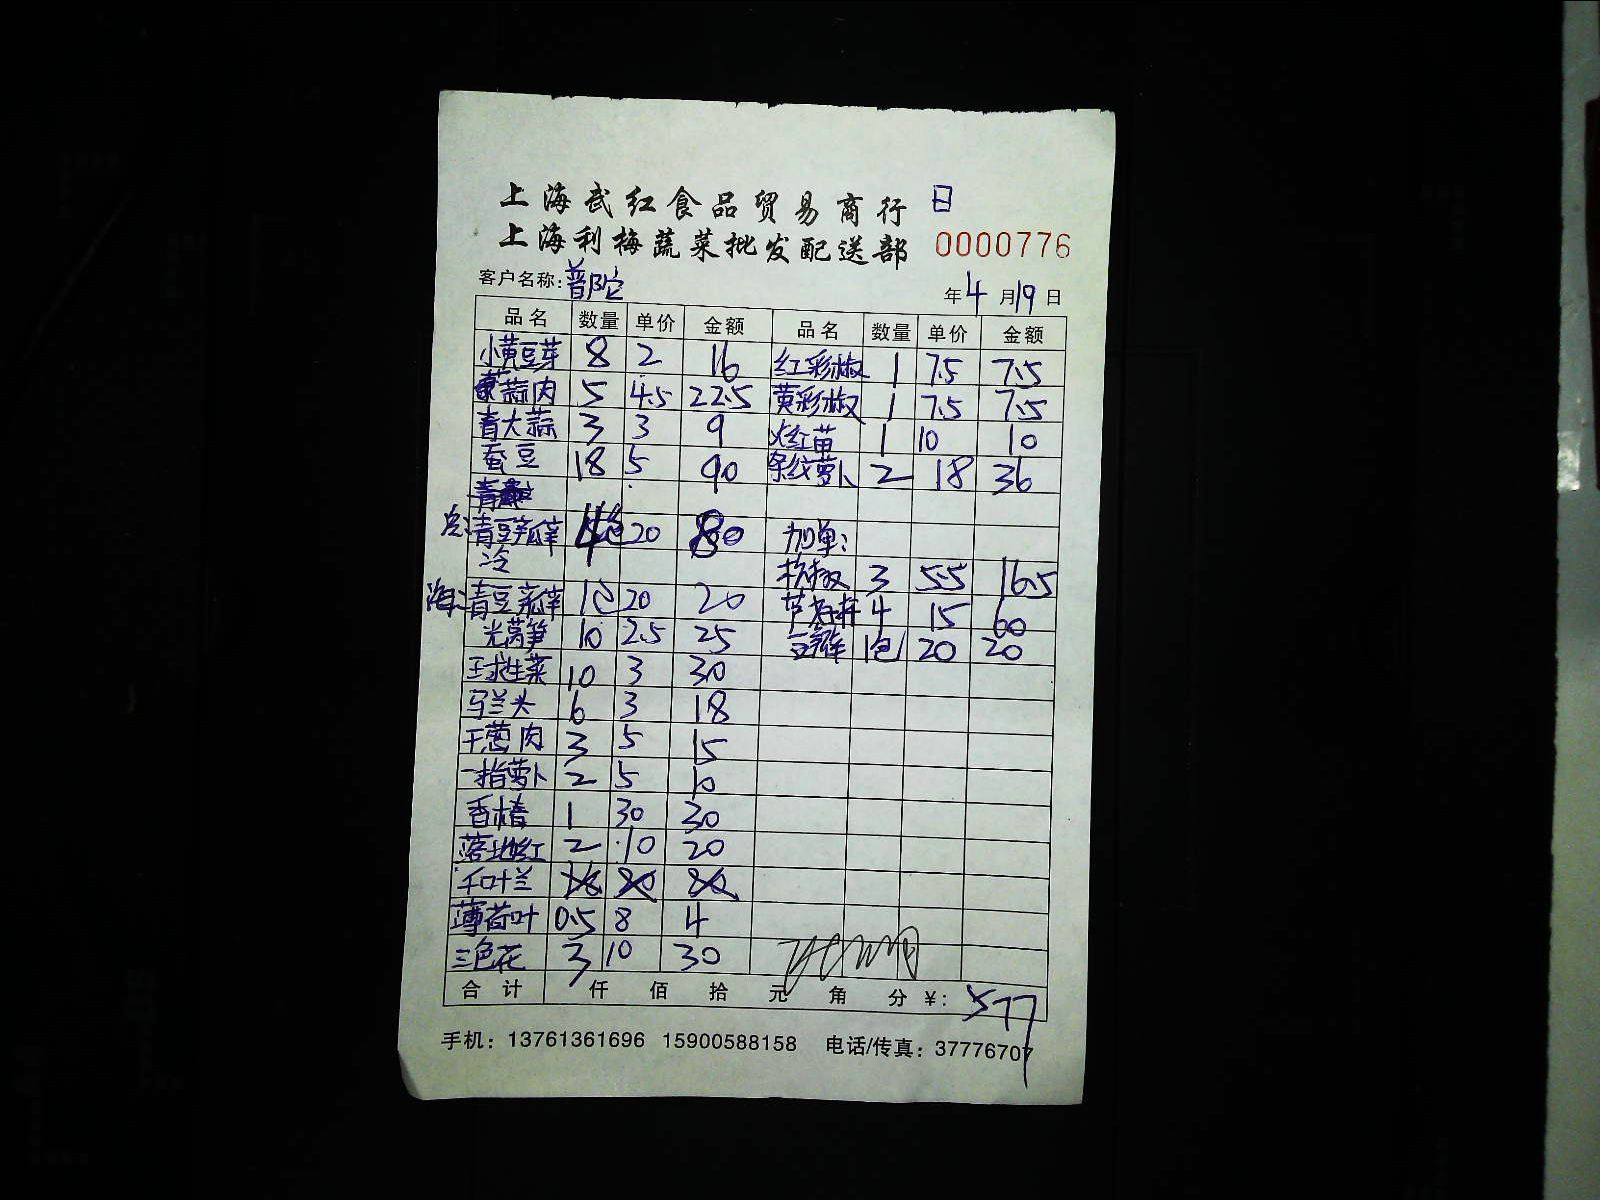 上海武红食品贸易商行 日
上海利梅蔬菜批发配送部 0000776
客户名称:普陀 年4月19日
品名 数量 单价 金额 品名 数量 单价 金额
小黄豆芽 8 2 16 红彩椒 1 7.5 7.5
蒜肉 5 4.5 22.5 黄彩椒 1 7.5 7.5
青大蒜 3 3 9 火红苗 1 10 10
蚕豆 18 5 90 条纹萝卜 2 18 36
青豆瓣 4包 20 80 加单:
冷 杭椒 3 5.5 16.5
海:青豆瓣 1包 20 20 4 15 60
光莴笋 10 2.5 25 豆瓣 1包 20 20
玉球生菜 10 3 30
马兰头 6 3 18
干葱肉 3 5 15
一指萝卜 2 5 10
香椿 1 30 30
落地红 2 10 20
千叶兰
薄荷叶 0.5 8 4
三色花 3 10 30
合计 仟 佰 拾 元 角 分 ¥: 577
手机: 13761361696 15900588158 电话/传真: 37776707